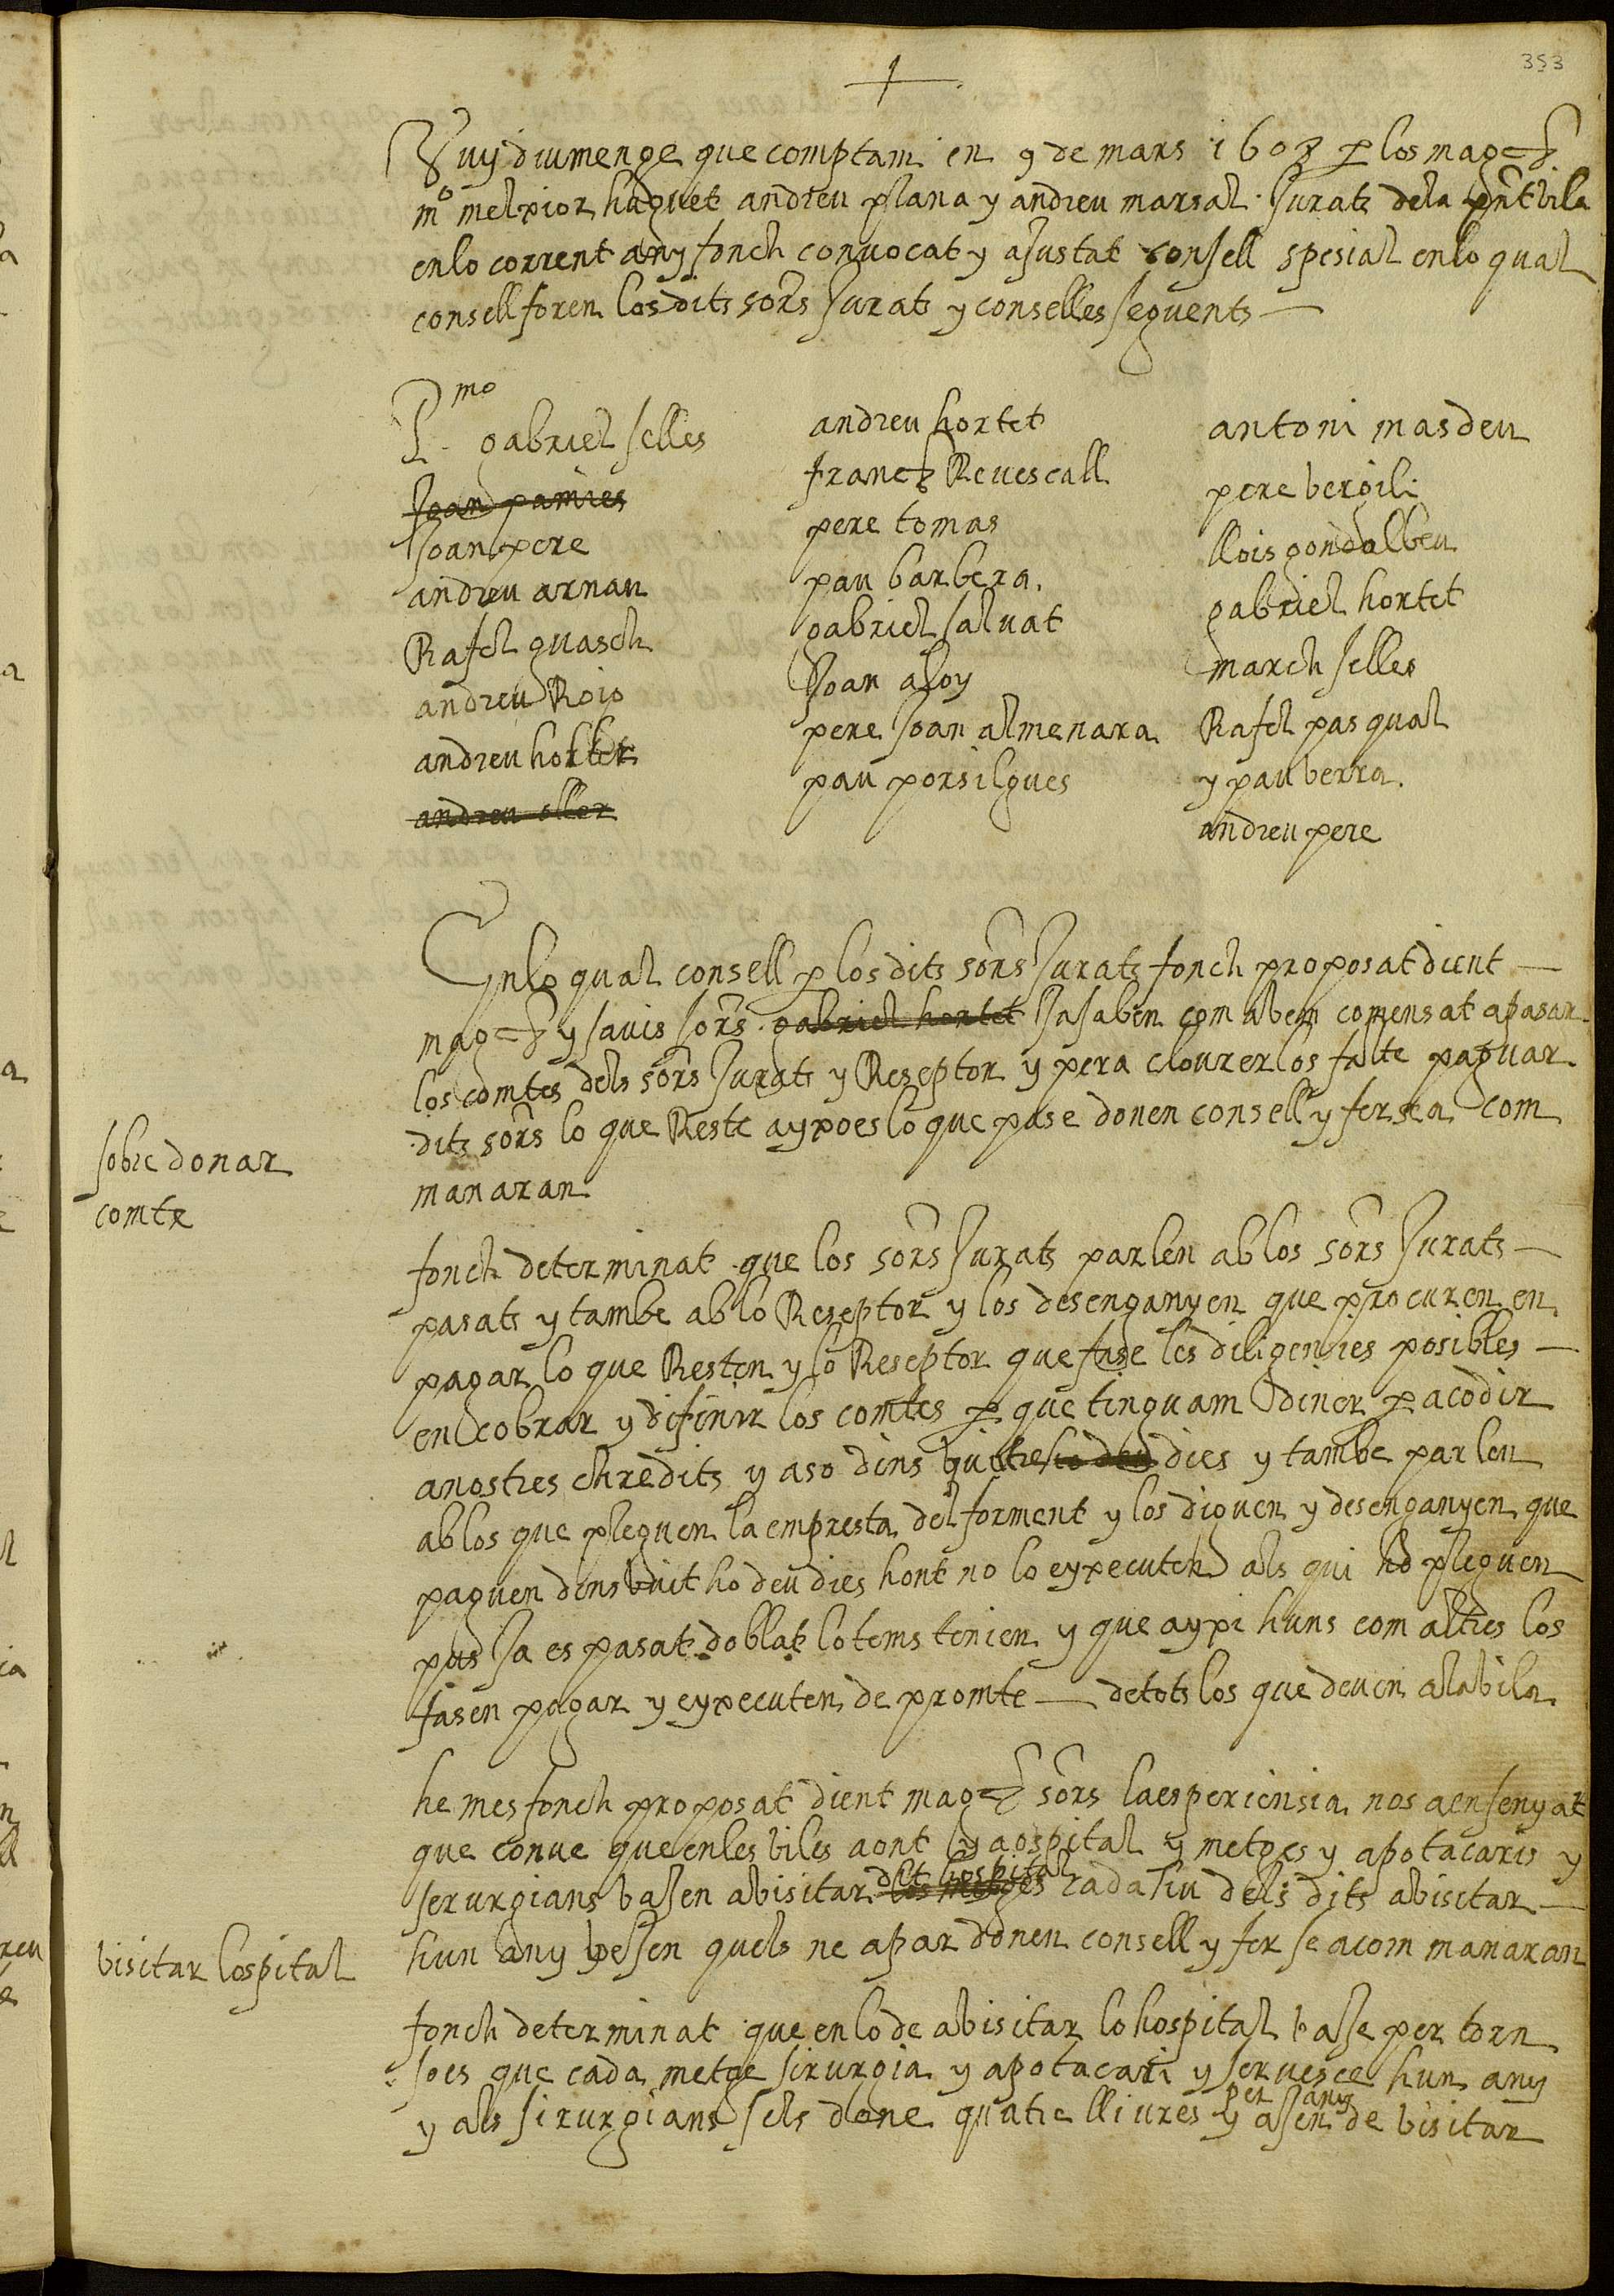 353
Vuy diumenge que comptam en 9 de mars 1603 p los mag.chs
mº melxior huguet andreu plana y andreu marsal jurats dela pnt vila
en lo corrent any fonch convocat y ajustat consell spesial en lo qual
consell foren los dits sors jurats y conselles seguents
Pmo gabriel selles
Joan pamies
Joan pere
andreu arnau
Rafel guasch
andreu Roig
andreu horter
andreu oller
andreu hortet
franch Revescall
pere tomas
pau barbera
gabriel salvat
Joan aloy
pere Joan almenara
pau porsilgues
antoni masdeu
pere bergili
llois gondalbeu
gabriel hortet
march selles
Rafel pasqual
y pau berra
andreu pere
Enlo qual consell p los dits sors jurats fonch proposat dient
mag.chs y savis sors gabriel hortet Ja saben com abem comensat apasar
los comtes dels sors jurats y Reseptor y pera clourer los falte paguar
dits sors lo que Reste aypo es lo que pase donen consell y fersea com
manaran
sobre donar
comte
fonch determinat que los sors jurats parlen ab los sors jurats
pasats y tambe ab lo Reseptor y los desenganyen que procuren en
pagar lo que Resten y lo Reseptor que fase les diligensies posibles
en cobrar y difinir los comtes p que tinguam diner p acodir
anostres chredits y aso dins huit ho deu dies y tambe parlen
ab los que pleguen la empresta del forment y los diguen y desenganyen que
paguen dins vuit ho deu dies hont no lo eyxecuten als qui ho pleguen
pus ja es pasat doblat lo tems tenien y que aypi huns com altres los
fasen pagar y eyxecuten de promte detots los que deuen alabila
he mes fonch proposat dient mag.chs sors la esperiensia nos a ensenyat
que conve que en les biles aont y a ospital y metges y apotacaris y
serurgians bajen abisitar los metges dit hospital cada hu dels dits abisitar
hun any vejen quels ne apar donen consell y fer se a com manaran
bisitar lospital
fonch determinat que en lo de abisitar lo hospital baje per torn
so es que cada metge sirurgia y apotacari y servesce hun any
y als sirurgians sels done quatre lliures per any y ajen de bisitar